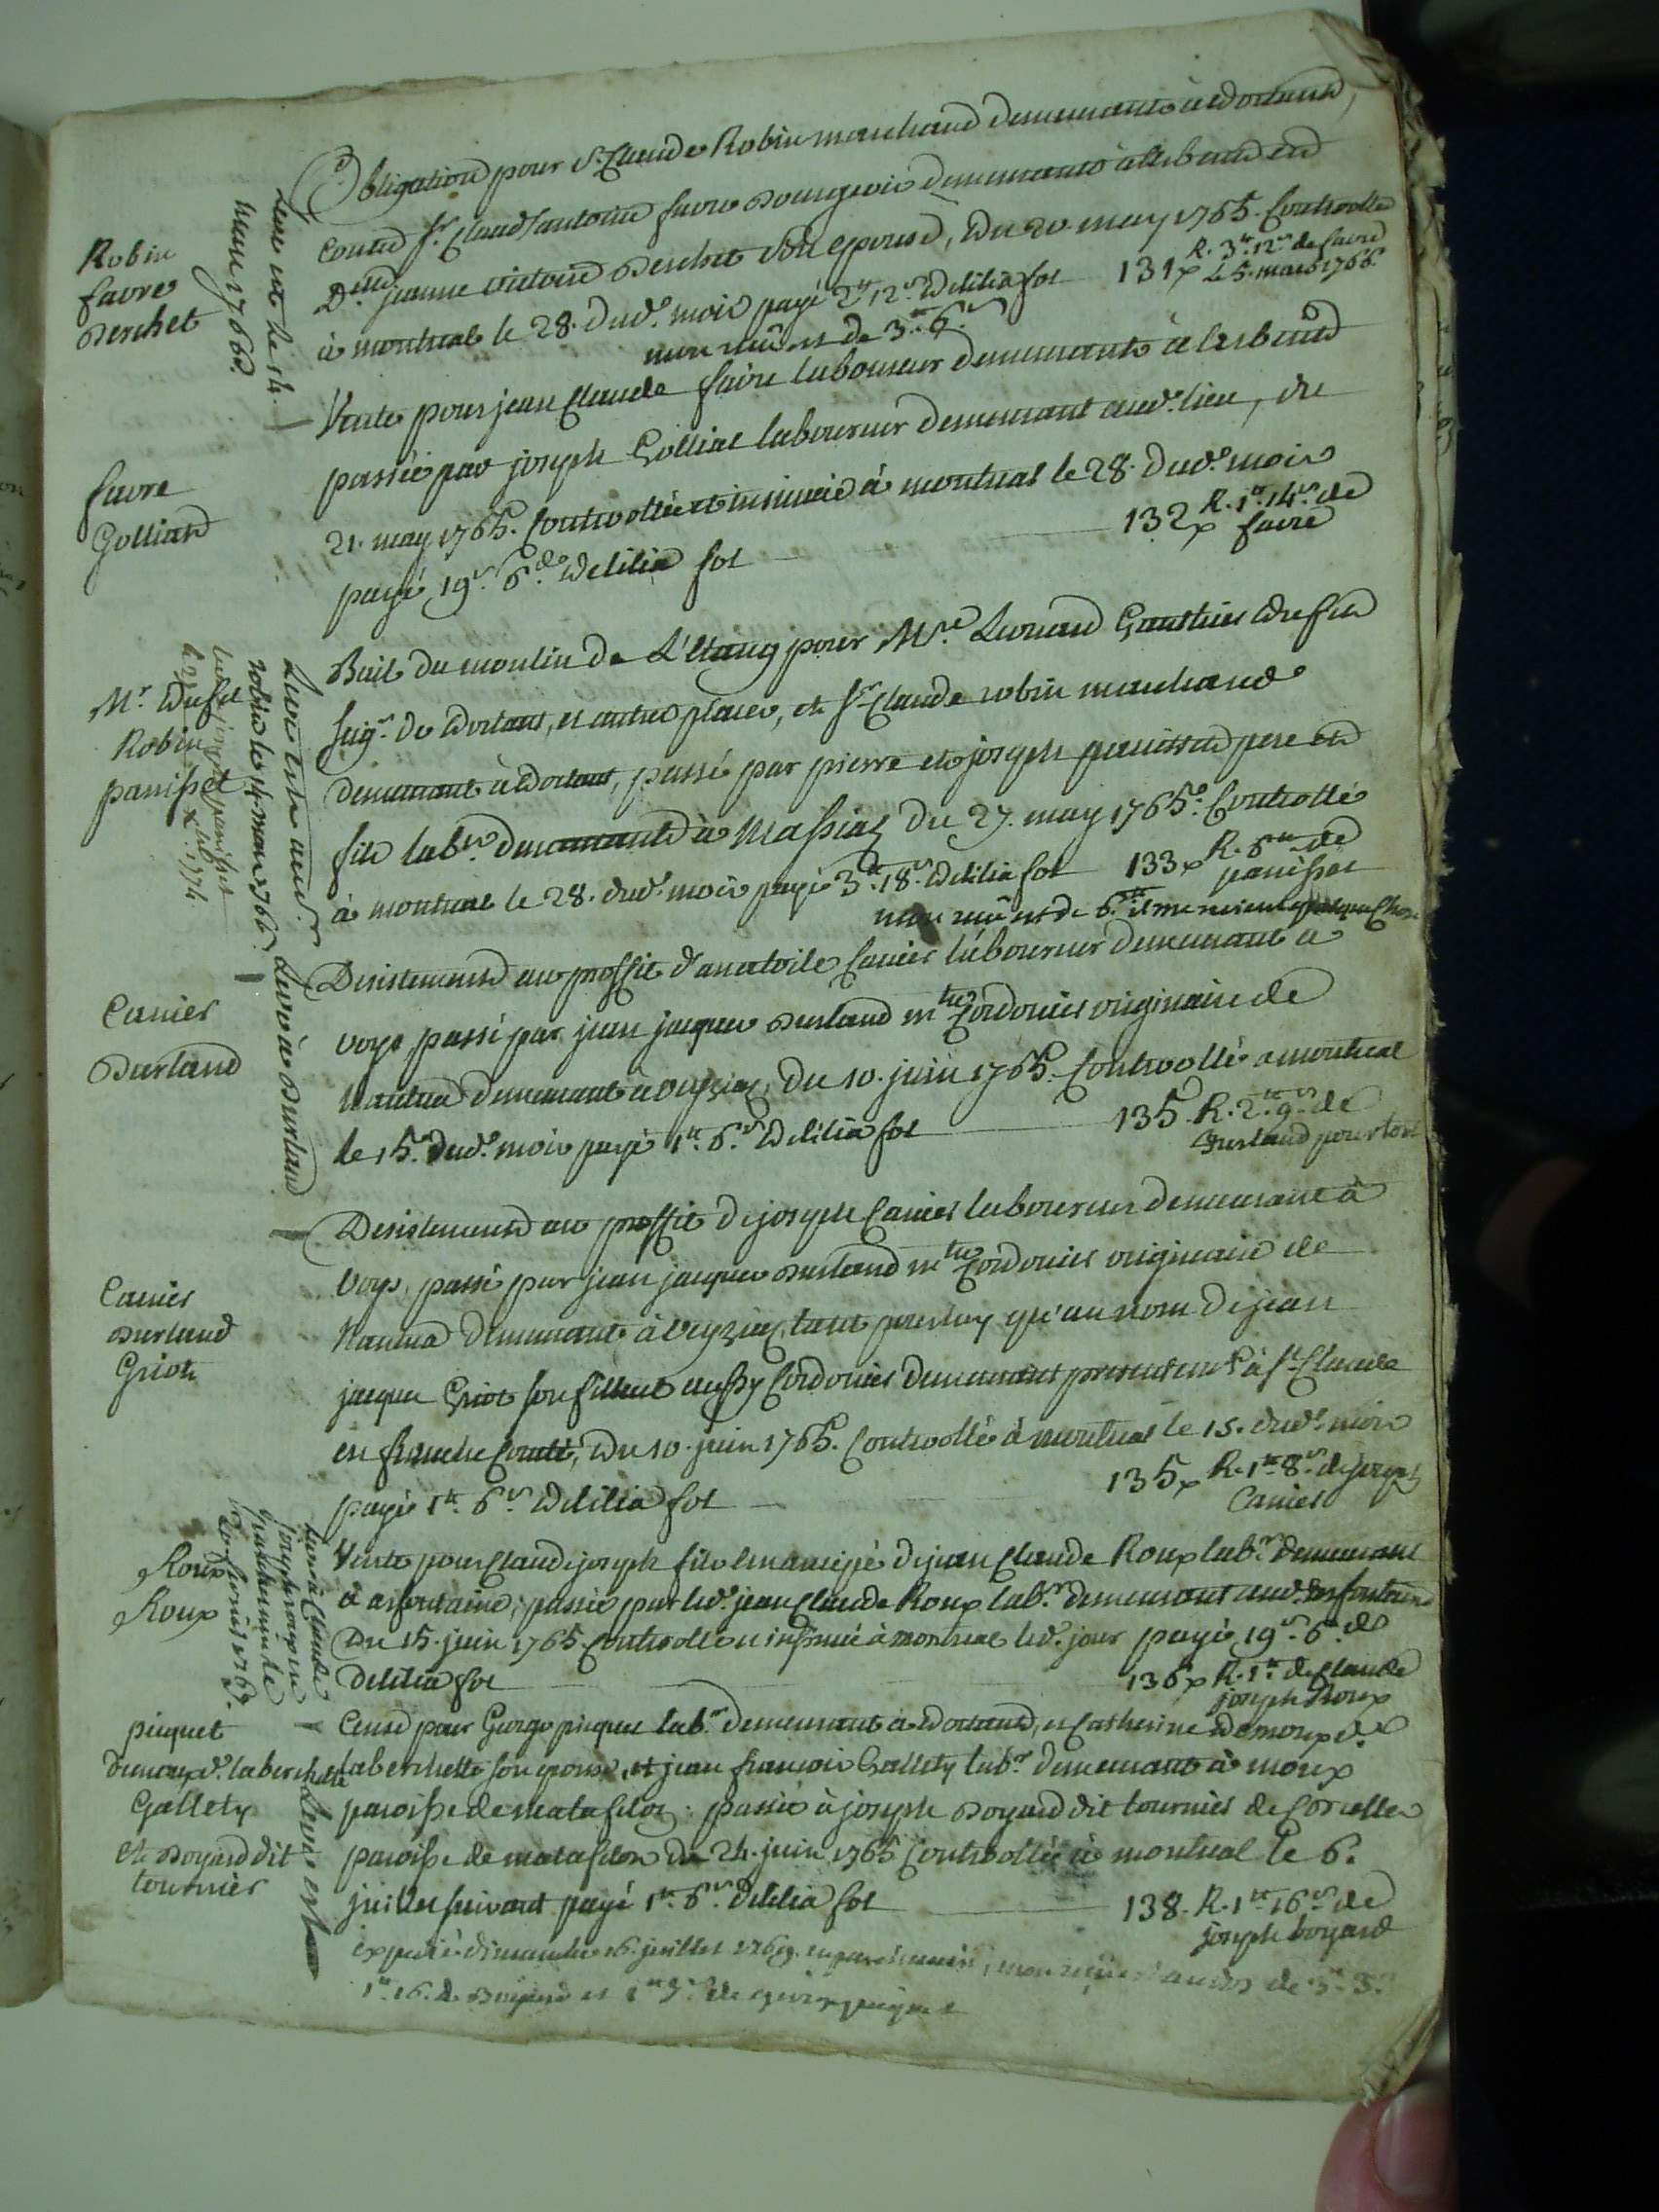 Robin
favre
Berchet
Levé est le 14
mars 1766.
Obligation pour Sr. Claude Robin marchand demeurant à Dortand,
contre Sr. Claud'antoine favre Bourgeois demeurant à
De. jeanne victoire Berchet son épouse, du 20. may 1765. Controlle
à montreal le 28. dud. mois payé 2tt 12s Delilia fol 131 R. 3tt. 12s de favre
le 5. mars 1766.
mon reçû est de 3tt. 6s
favre
Golliard
Vente pour jean Claude favre laboureur demeurant à
passée par joseph Golliat laboureur demeurant aud. lieu, du
21. may 1765. Controollée et insinuée à montreal le 28. dud. mois
payé 19s. 6d. Delilia fol 132 R. 1tt. 14s. de
favre
Mr. Dufil
Robin
panisset
robin le 14 mars 1766.
Bail du moulin de L'Etang pour Mre. Leonard Gauthier Dufil
seigr. de Dortant, et autres places, et Sr. Claude robin marchand
demeurant à Dortant, passé par pierre et joseph panisset pere et
fils labrs. demeurants à Massiaz du 27. may 1765. Controllé
à montreal le 28. dud. mois payé 3tt. 18s. Delilia fol 133 R. 6tt de
panisset
mon reçû est de 6tt il me revient quelque chose
Canier
Burland
Levé à Burland
Desistement au proffit d'anatoile Canier laboureur demeurant à
voys passé par jean jacques Burland mtre Cordonier originaire de
Nantua demeurant à veyziaz, du 10. juin 1765. Controollé a montreal
le 15. dud. mois payé 1tt. 6s Delilia fol 135. R. 2tt. 9s de
Burland pour tout
Canier
Burland
Griot
Desistement au proffit de joseph Canier laboureur demeurant à
Voys, passé par jean jacques Burland mtre Cordonier originaire de
Nantua demeurant à veyziaz, tant pour luy qu'au nom de jean
jacque Griot son filleul aussy Cordonier demeurant presentemt. à St. Claude
en franche Comté, du 10. juin 1765. Controollé à montreal le 15. dud. mois
payé 1tt. 6s Delilia fol 135 R. 1tt. 8s. de joseph
Canier
Roux
Roux
Levé à Claude
joseph roux en
Vente pour Claude joseph fils emancipé de jean Claude Roux labr. demeurant
à asfontaine, passée par led. jean Claude Roux labr. demeurant aud. asfontaine
Du 15. juin 1765. Controollé et insinué à montreal led. jour payé 19s. 6d. de
Delilia fol 136 R. 1tt. de Claude
joseph Roux
piquet
demoux de. laberchette
Gallety
et Boyard dit
tournier
Levé est
Cense pour George piquet labr. demeurant à Dortand, et Catherine Demoux de.
laberchette son epouse, et jean francois Gallety labr. demeurant à moux
paroisse de matafelon. passée à joseph Boyard dit tournier de Corcelle
paroisse de matafelon du 24. juin 1765 Controollée à montreal le 6.
juillet suivant payé 1tt. 6s. Delilia fol 138. R. 1tt 16s de
joseph boyard
expedié dimanche 16. juillet 1769. en parchemin, mon reçû est au dos de 3tt. 3s.
1tt. 16. de Boyard et